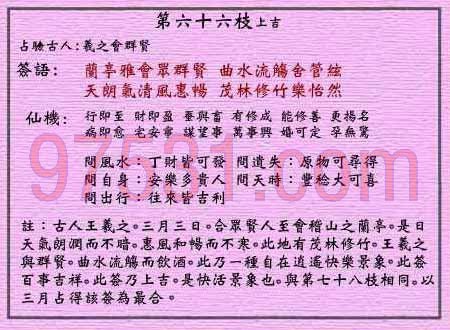 第六十六枝上吉
占驗古人：羲之會群賢
簽語：
蘭亭雅會眾群賢 曲水流觴舍管絃
天朗氣清風惠暢 茂林修竹樂怡然
仙機：
行即至 財即盈 蠶與畜 有修成 能修善 更揚名
病即愈 宅安寧 謀望事 萬事興 婚可定 孕無驚
問風水：丁財皆可發 問遺失：原物可尋得
問自身：安樂多貴人 問天時：豐稔大可喜
問出行：往來皆吉利
註：古人王羲之。三月三日。合眾賢人至會稽山之蘭亭。是日
天氣朗潤而不暗。惠風和暢而不寒。此地有茂林修竹。王羲之
與群賢。曲水流觴而飲酒。此乃一種自在逍遙快樂景象。此簽
百事吉祥。此簽乃上吉。是快活景象也。與第七十八枝相同。以
三月占得該簽為最合。
97531.com